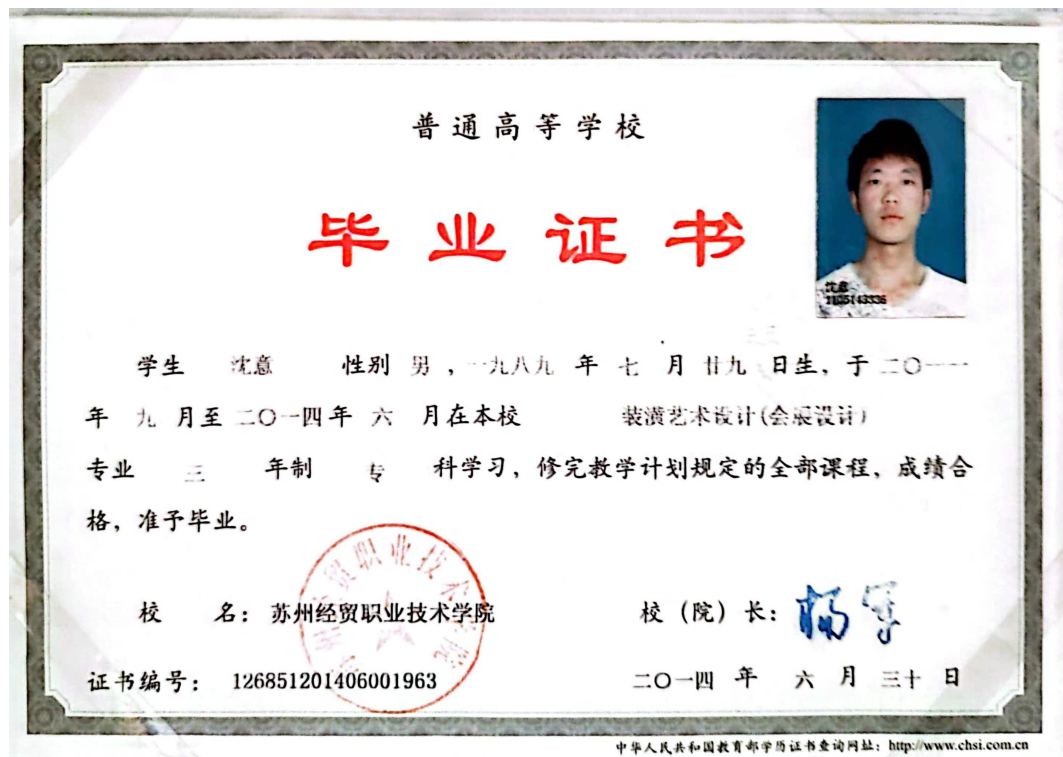 普通高等学校
毕业证书
沈意
1105143336
学生 沈意 性别 男 ，一九八九 年 七 月 廿九 日生，于 二〇一一
年 九 月至 二〇一四年 六 月在本校 装潢艺术设计(会展设计)
专业 三 年制 专 科学习，修完教学计划规定的全部课程，成绩合
格，准予毕业。
苏州经贸职业技术学院
校 名：苏州经贸职业技术学院 校（院）长：杨军
证书编号： 126851201406001963 二〇一四 年 六 月 三十 日
中华人民共和国教育部学历证书查询网址：http://www.chsi.com.cn